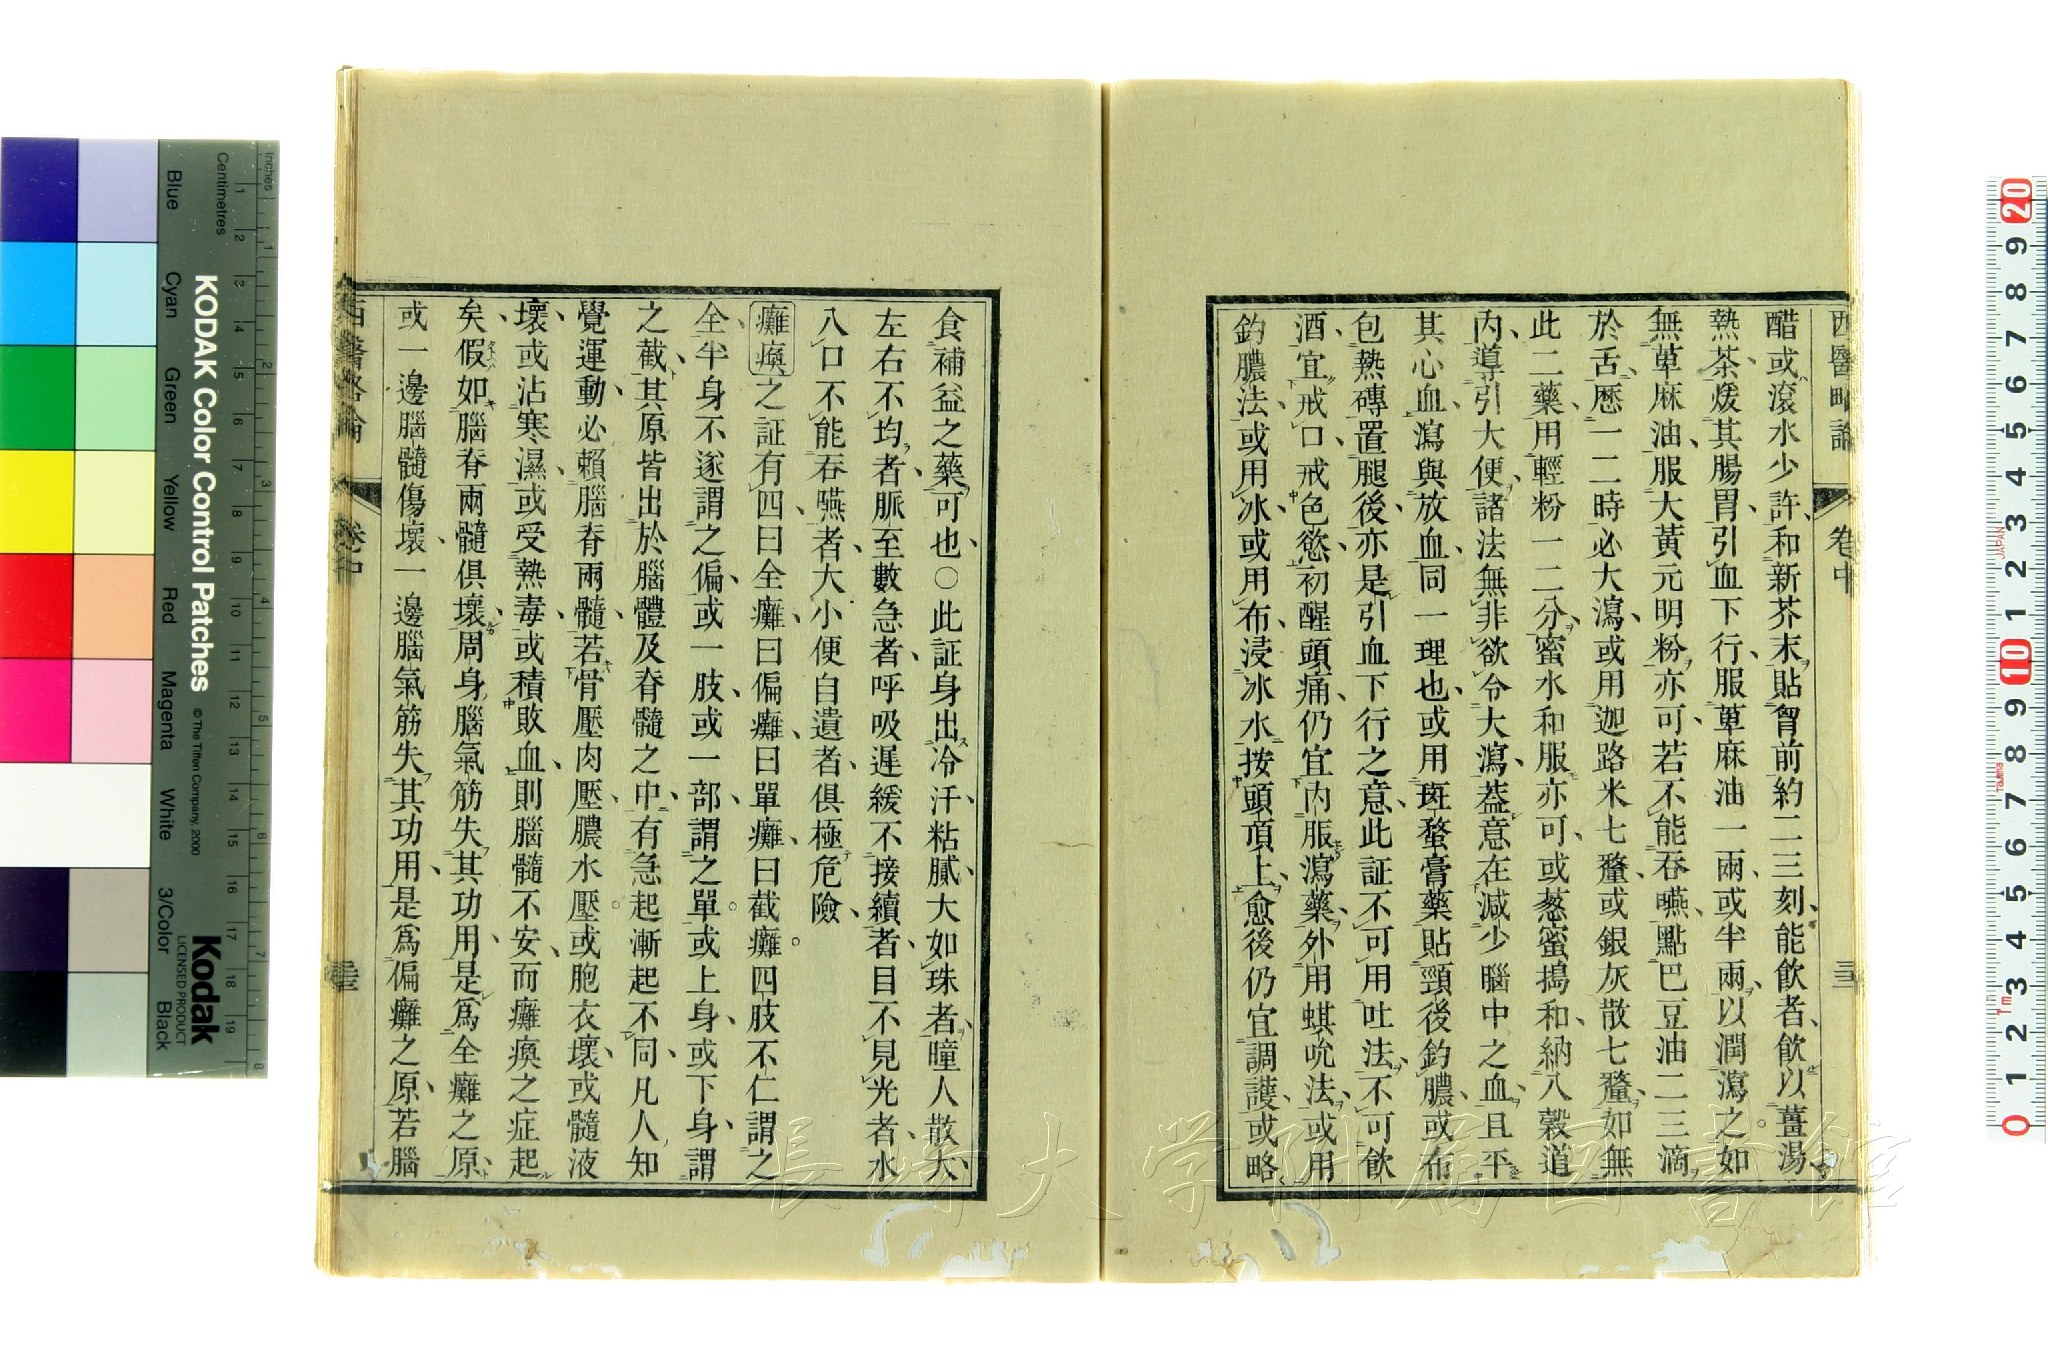 西醫略論 卷中 三
醋或滾水少許和新芥末貼胷前約二三刻能飲者飲以薑湯
熱茶煖其腸胃引血下行服萆麻油一兩或半兩以潤瀉之如
無萆麻油服大黃元明粉亦可若不能吞嚥點巴豆油二三滴
於舌歷一二時必大瀉或用迦路米七釐或銀灰散七釐如無
此二藥用輕粉一二分蜜水和服亦可或葱蜜搗和納入穀道
內導引大便諸法無非欲令大瀉葢意在減少腦中之血且平
其心血瀉與放血同一理也或用斑蝥膏藥貼頸後釣膿或布
包熱磚置腿後亦是引血下行之意此証不可用吐法不可飲
酒宜戒口戒色慾初醒頭痛仍宜內服瀉藥外用蜞吮法或用
釣膿法或用冰或用布浸冰水按頭頂上愈後仍宜調護或略
食補益之藥可也○此証身出冷汗粘膩大如珠者瞳人散大
左右不均者脈至數急者呼吸遲緩不接續者目不見光者水
入口不能吞嚥者大小便自遺者俱極危險
癱瘓之証有四曰全癱曰偏癱曰單癱曰截癱四肢不仁謂之
全半身不遂謂之偏或一肢或一部謂之單或上身或下身謂
之截其原皆出於腦體及脊髓之中有急起漸起不同凡人知
覺運動必賴腦脊兩髓若骨壓肉壓膿水壓或胞衣壞或髓液
壞或沾寒濕或受熱毒或積敗血則腦髓不安而癱瘓之症起
矣假如腦脊兩髓俱壞周身腦氣筋失其功用是爲全癱之原
或一邊腦髓傷壞一邊腦氣筋失其功用是爲偏癱之原若腦
西醫略論 卷中
長崎大学附属図書館
KODAK Color Control Patches
© The Tiffen Company, 2000
Kodak
LICENSED PRODUCT
Centimetres
Inches
Blue Cyan Green Yellow Red Magenta White 3/Color Black